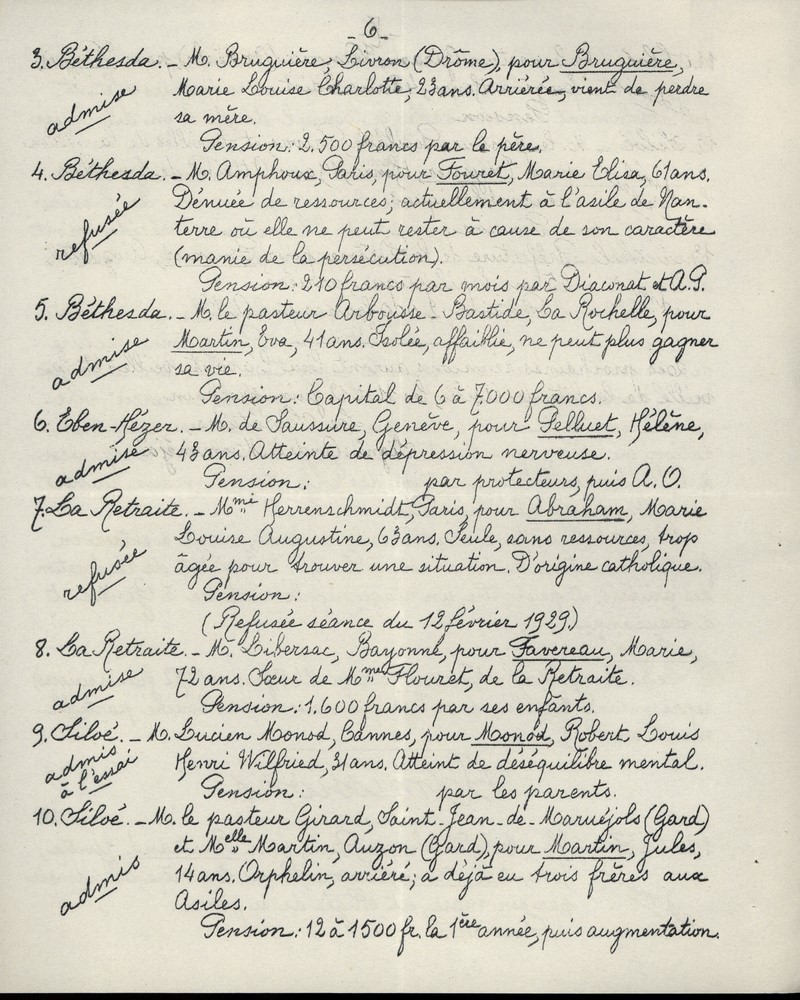 - 6 -
3. Béthesda. - M. Bruguière, Livron (Drôme), pour Bruguière,
admise
Marie Louise Charlotte, 23 ans. Arriérée, vient de perdre
sa mère.
Pension: 2.500 francs par le père.
4. Béthesda. - M. Amphoux, Paris, pour Fouret, Marie Elisa, 61 ans.
refusée
Dénuée de ressources; actuellement à l'asile de Nan-
terre où elle ne peut rester à cause de son caractère
(manie de la persécution).
Pension: 210 francs par mois par Diaconat et A.P.
5. Béthesda. - M. le pasteur Arbousse-Bastide, La Rochelle, pour
admise
Martin, Eva, 41 ans. Isolée, affaiblie, ne peut plus gagner
sa vie.
Pension: Capital de 6 à 7000 francs.
6. Eben-Hézer. - M. de Saussure, Genève, pour Pelluet, Hélène,
admise
43 ans. Atteinte de dépression nerveuse.
Pension: par protecteurs, puis A.O.
7. La Retraite. - Mme Herrenschmidt, Paris, pour Abraham, Marie
refusée
Louise Augustine, 63 ans. Seule, sans ressources, trop
âgée pour trouver une situation. D'origine catholique.
Pension:
(Refusée séance du 12 février 1929.)
8. La Retraite. - M. Libersac, Bayonne, pour Favereau, Marie,
admise
72 ans. Sœur de Mme Flouret, de la Retraite.
Pension: 1.600 francs par ses enfants.
9. Siloé. - M. Lucien Monod, Cannes, pour Monod, Robert Louis
admis
à l'essai
Henri Wilfried, 31 ans. Atteint de déséquilibre mental.
Pension: par les parents.
10. Siloé. - M. le pasteur Girard, Saint-Jean-de-Maruéjols (Gard)
admis
et Melle Martin, Auzon (Gard), pour Martin, Jules,
14 ans. Orphelin, arriéré; a déjà eu trois frères aux
Asiles.
Pension: 12 à 1500 fr. la 1ère année, puis augmentation.